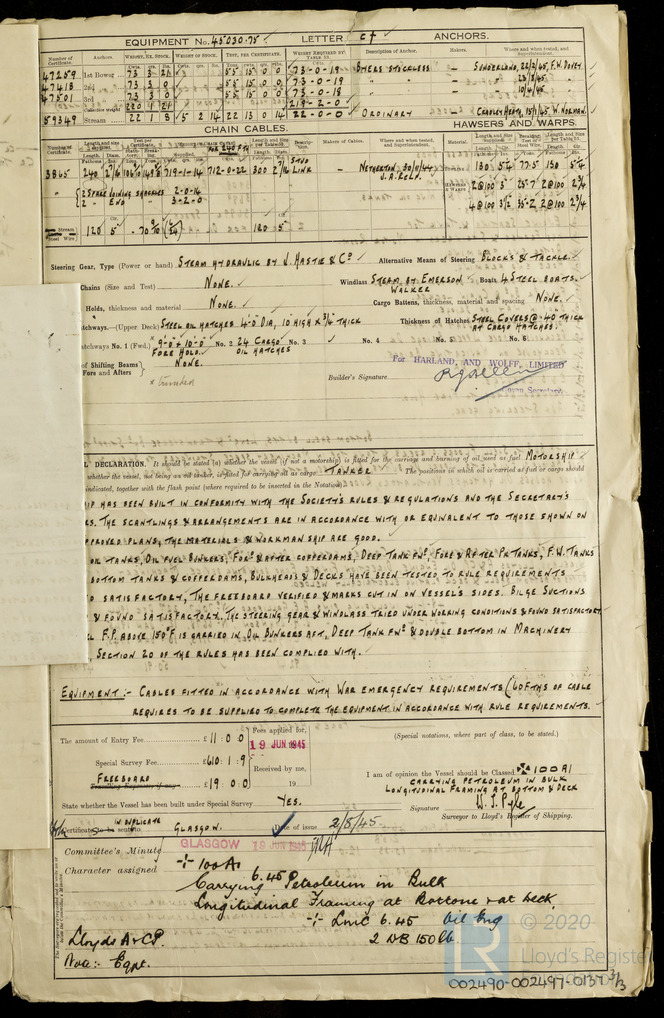 EQUIPMENT No. 45030.75 LETTER C† ANCHORS.
Number of Certificate. Anchors. WEIGHT, EX. STOCK. WEIGHT OF STOCK. TEST, PER CERTIFICATE. WEIGHT REQUIRED BY TABLE 53. Description of Anchor. Makers. Where and when tested, and Superintendent.
47259 1st Bower 73 3 21 55 15 0 0 73-0-19 BYERS STOCKLESS — SUNDERLAND, 22/2/45, F.W. DOVEY.
47418 2nd 73 3 0 55 15 0 0 73-0-19 " " — " 23/3/45 "
47501 3rd 73 3 0 55 15 0 0 73-0-18 " " — " 10/4/45 "
Collective weight 220 1 21 219-2-0
59349 Stream 22 1 8 5 2 14 22 13 0 14 22-0-0 ORDINARY — CRADLEY HEATH, 15/1/45, W. NORMAN.
CHAIN CABLES. HAWSERS AND WARPS.
3865 240 2 7/16 719-1-14 712-0-22 300 2 7/16 STUD LINK — NETHERTON, 30/11/44 130 5¼ 77.5 150 5¼
J.A. RELF.
" 2 SPARE JOINING SHACKLES 2-0-14 2@100 3" 25.7 2@100 2¾
" 2 - END - 3-2-0 4@100 3½ 35.2 2@100 2¾
Stream Steel Wire 120 5" 120 5"
Steering Gear, Type (Power or hand) STEAM HYDRAULIC BY J. HASTIE & Co Alternative Means of Steering BLOCKS & TACKLE.
Chains (Size and Test) NONE. Windlass STEAM BY EMERSON WALKER Boats 4 STEEL BOATS.
Holds, thickness and material NONE. Cargo Battens, thickness, material and spacing NONE.
atchways.—(Upper Deck) STEEL OIL HATCHES 4'-0" DIA, 10" HIGH x ¾" THICK Thickness of Hatches STEEL COVERS @ .40" THICK AT CARGO HATCHES.
atchways No. 1 (Fwd.) 9'-0" x 10'-0" FORE HOLD. No. 2 24 CARGO OIL HATCHES No. 3 No. 4 No. 5 No. 6
of Shifting Beams Fore and Afters NONE.
For HARLAND, AND WOLFF, LIMITED
Builder's Signature
L DECLARATION. It should be stated (a) whether the vessel (if not a motorship) is fitted for the carriage and burning of oil used as fuel MOTORSHIP
whether the vessel, not being an oil tanker, is fitted for carrying oil as cargo TANKER The positions in which oil is carried as fuel or cargo should
indicated, together with the flash point (where required to be inserted in the Notation)
IP HAS BEEN BUILT IN CONFORMITY WITH THE SOCIETY'S RULES & REGULATIONS AND THE SECRETARY'S
RS. THE SCANTLINGS & ARRANGEMENTS ARE IN ACCORDANCE WITH OR EQUIVALENT TO THOSE SHOWN ON
PPROVED PLANS, THE MATERIALS & WORKMANSHIP ARE GOOD.
OIL TANKS, OIL FUEL BUNKERS, FORD & AFTER COFFERDAMS, DEEP TANK FWD, FORE & AFTER PK TANKS, F.W. TANKS
BOTTOM TANKS & COFFERDAMS, BULKHEADS & DECKS HAVE BEEN TESTED TO RULE REQUIREMENTS
D SATISFACTORY, THE FREEBOARD VERIFIED & MARKS CUT IN ON VESSEL'S SIDES. BILGE SUCTIONS
& FOUND SATISFACTORY. THE STEERING GEAR & WINDLASS TRIED UNDER WORKING CONDITIONS & FOUND SATISFACTORY.
L F.P. ABOVE 150°F IS CARRIED IN OIL BUNKERS AFT, DEEP TANK FWD & DOUBLE BOTTOM IN MACHINERY
, SECTION 20 OF THE RULES HAS BEEN COMPLIED WITH.
EQUIPMENT:- CABLES FITTED IN ACCORDANCE WITH WAR EMERGENCY REQUIREMENTS (60 FTHS OF CABLE
REQUIRES TO BE SUPPLIED TO COMPLETE THE EQUIPMENT IN ACCORDANCE WITH RULE REQUIREMENTS.
The amount of Entry Fee £ 11 : 0 : 0 Fees applied for, (Special notations, where part of class, to be stated.)
19 JUN 1945
Special Survey Fee £610 : 1 : 9 Received by me,
FREEBOARD £ 19 : 0 : 0 19
I am of opinion the Vessel should be Classed ✠ 100 A1
CARRYING PETROLEUM IN BULK
LONGITUDINAL FRAMING AT BOTTOM & DECK
State whether the Vessel has been built under Special Survey YES. Signature W. J. Pyle
Surveyor to Lloyd's Register of Shipping.
IN DUPLICATE
Certificate to be sent to GLASGOW. Date of issue 2/8/45
Committee's Minute GLASGOW 18 JUN 1945
Character assigned ✠ 100 A1
6.45 Carrying Petroleum in Bulk
Longitudinal Framing at Bottom & at deck.
✠ LMC 6.45 Oil Eng
Lloyds A & CP. 2 DB 150 lb.
Note:- Eqpt.
© 2020
Lloyd's Register
002490-002497-0137 3/3